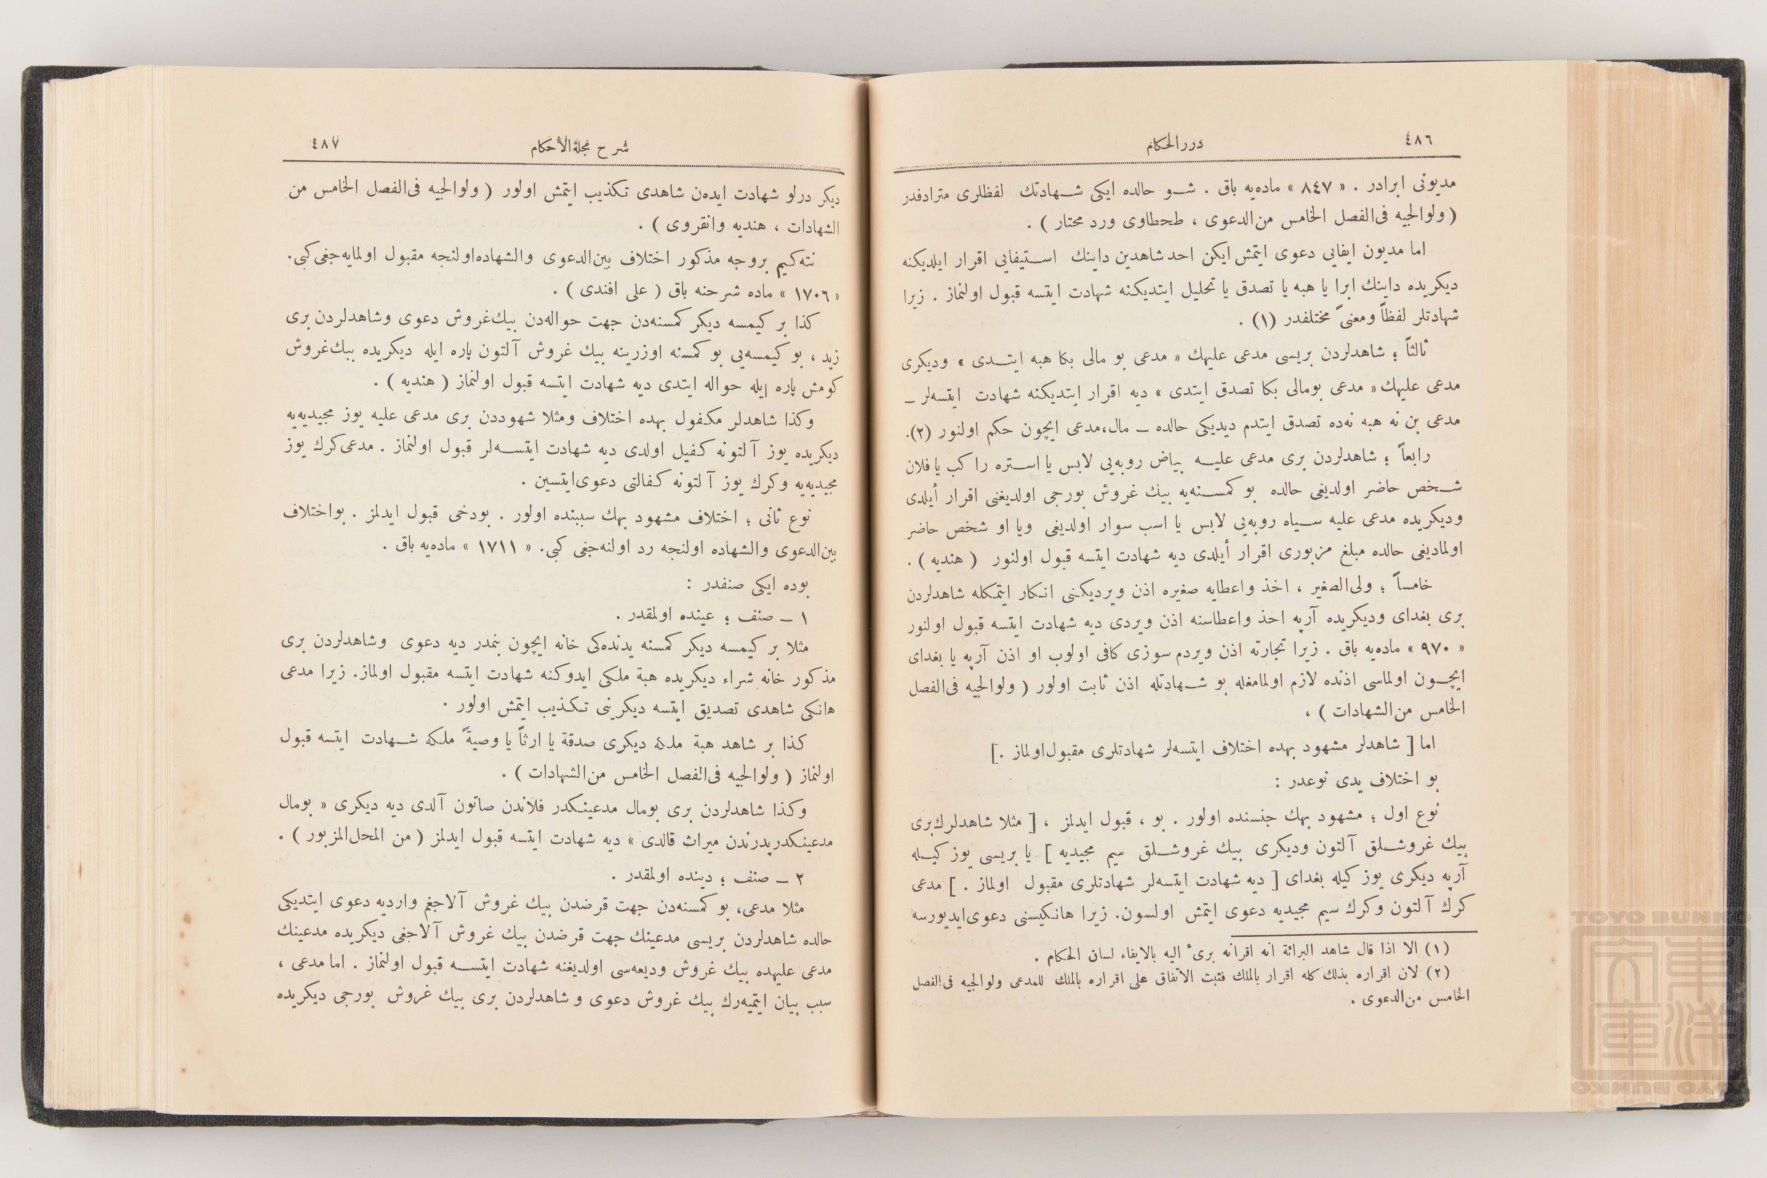 ٤٨٦
دررالحكام
مديونى ابرادر . « ٨٤٧ » ماده‌يه باق . شو حالده ايكى شهادتك لفظلرى مترادفدر
( ولوالجيه فى‌الفصل الخامس من‌الدعوى ، طحطاوى ورد محتار ) .
اما مديون ايفايى دعوى ايتمش ايكن احد شاهدين داينك استيفايى اقرار ايلديكنه
ديكريده داينك ابرا يا هبه يا تصدق يا تحليل ايتديكنه شهادت ايتسه قبول اولنماز . زيرا
شهادتلر لفظاً ومعنىً مختلفدر (١) .
ثالثاً ؛ شاهدلردن بريسى مدعى عليهك « مدعى بو مالى بكا هبه ايتدى » وديكرى
مدعى عليهك « مدعى بومالى بكا تصدق ايتدى » ديه اقرار ايتديكنه شهادت ايتسه‌لر ـ
مدعى بن نه هبه نه‌ده تصدق ايتدم ديديكى حالده ـ مال،مدعى ايچون حكم اولنور (٢).
رابعاً ؛ شاهدلردن برى مدعى عليه بياض روبه‌يى لابس يا استره راكب يا فلان
شخص حاضر اولديغى حالده بو كمسنه‌يه بيك غروش بورجى اولديغنى اقرار أيلدى
وديكريده مدعى عليه سياه روبه‌يى لابس يا اسب سوار اولديغى ويا او شخص حاضر
اولماديغى حالده مبلغ مزبورى اقرار أيلدى ديه شهادت ايتسه قبول اولنور ( هنديه ) .
خامساً ؛ ولى‌الصغير ، اخذ واعطايه صغيره اذن ويرديكنى انكار ايتمكله شاهدلردن
برى بغداى وديكريده آرپه اخذ واعطاسنه اذن ويردى ديه شهادت ايتسه قبول اولنور
« ٩٧٠ » ماده‌يه باق . زيرا تجارته اذن ويردم سوزى كافى اولوب او اذن آرپه يا بغداى
ايچون اولماسى اذنده لازم اولمامغله بو شهادتله اذن ثابت اولور ( ولوالجيه فى‌الفصل
الخامس من‌الشهادات ) ،
اما [ شاهدلر مشهود بهده اختلاف ايتسه‌لر شهادتلرى مقبول‌اولماز .]
بو اختلاف يدى نوعدر :
نوع اول ؛ مشهود بهك جنسنده اولور . بو ، قبول ايدلمز ، [ مثلا شاهدلرك‌برى
بيك غروشلق آلتون وديكرى بيك غروشلق سيم مجيديه ] يا بريسى يوز كيله
آرپه ديكرى يوز كيله بغداى [ ديه شهادت ايتسه‌لر شهادتلرى مقبول اولماز . ] مدعى
كرك آلتون وكرك سيم مجيديه دعوى ايتمش اولسون. زيرا هانكيسنى دعوى‌ايديورسه
(١) الا اذا قال شاهد البرائة انه اقرانه برىء اليه بالايفاء لسان الحكام .
(٢) لان اقراره بذلك كله اقرار بالملك فثبت الاتفاق على اقراره بالملك للمدعى ولوالجيه فى‌الفصل
الخامس من‌الدعوى .
شرح مجلة‌الأحكام
٤٨٧
ديكر درلو شهادت ايده‌ن شاهدى تكذيب ايتمش اولور ( ولوالجيه فى‌الفصل الخامس من
الشهادات ، هنديه وانقروى ) .
نته‌كيم بروجه مذكور اختلاف بين‌الدعوى والشهاده‌اولنجه مقبول اولمايه‌جغى‌كبى.
« ١٧٠٦ » ماده شرحنه باق ( على افندى ) .
كذا بر كيمسه ديكر كمسنه‌دن جهت حواله‌دن بيك‌غروش دعوى وشاهدلردن برى
زيد ، بو كيمسه‌يى بو كمسنه اوزرينه بيك غروش آلتون پاره ايله ديكريده بيك‌غروش
كومش پاره ايله حواله ايتدى ديه شهادت ايتسه قبول اولنماز ( هنديه ) .
وكذا شاهدلر مكفول بهده اختلاف ومثلا شهوددن برى مدعى عليه يوز مجيديه‌يه
ديكريده يوز آلتونه كفيل اولدى ديه شهادت ايتسه‌لر قبول اولنماز . مدعى‌كرك يوز
مجيديه‌يه وكرك يوز آلتونه كفالتى دعوى‌ايتسين .
نوع ثانى ؛ اختلاف مشهود بهك سببنده اولور . بودخى قبول ايدلمز . بواختلاف
بين‌الدعوى والشهاده اولنجه رد اولنه‌جغى كبى. « ١٧١١ » ماده‌يه باق .
بوده ايكى صنفدر :
١ ـ صنف ؛ عينده اولمقدر .
مثلا بر كيمسه ديكر كمسنه يدنده‌كى خانه ايچون بنمدر ديه دعوى وشاهدلردن برى
مذكور خانه شراء ديكريده هبة ملكى ايدوكنه شهادت ايتسه مقبول اولماز. زيرا مدعى
هانكى شاهدى تصديق ايتسه ديكرينى تكذيب ايتمش اولور .
كذا بر شاهد هبة ملكه ديكرى صدقة يا ارثاً يا وصيةً ملكه شهادت ايتسه قبول
اولنماز ( ولوالجيه فى‌الفصل الخامس من‌الشهادات ) .
وكذا شاهدلردن برى بومال مدعينكدر فلاندن صاتون آلدى ديه ديكرى « بومال
مدعينكدرپدرندن ميراث قالدى » ديه شهادت ايتسه قبول ايدلمز ( من المحل‌المزبور ) .
٢ ـ صنف ؛ دينده اولمقدر .
مثلا مدعى، بو كمسنه‌دن جهت قرضدن بيك غروش آلاجغم وارديه دعوى ايتديكى
حالده شاهدلردن بريسى مدعينك جهت قرضدن بيك غروش آلاجغى ديكريده مدعينك
مدعى عليهده بيك غروش وديعه‌سى اولديغنه شهادت ايتسه قبول اولنماز . اما مدعى ،
سبب بيان ايتميه‌رك بيك غروش دعوى و شاهدلردن برى بيك غروش بورجى ديكريده
TOYO BUNKO
東洋文庫
TOYO BUNKO